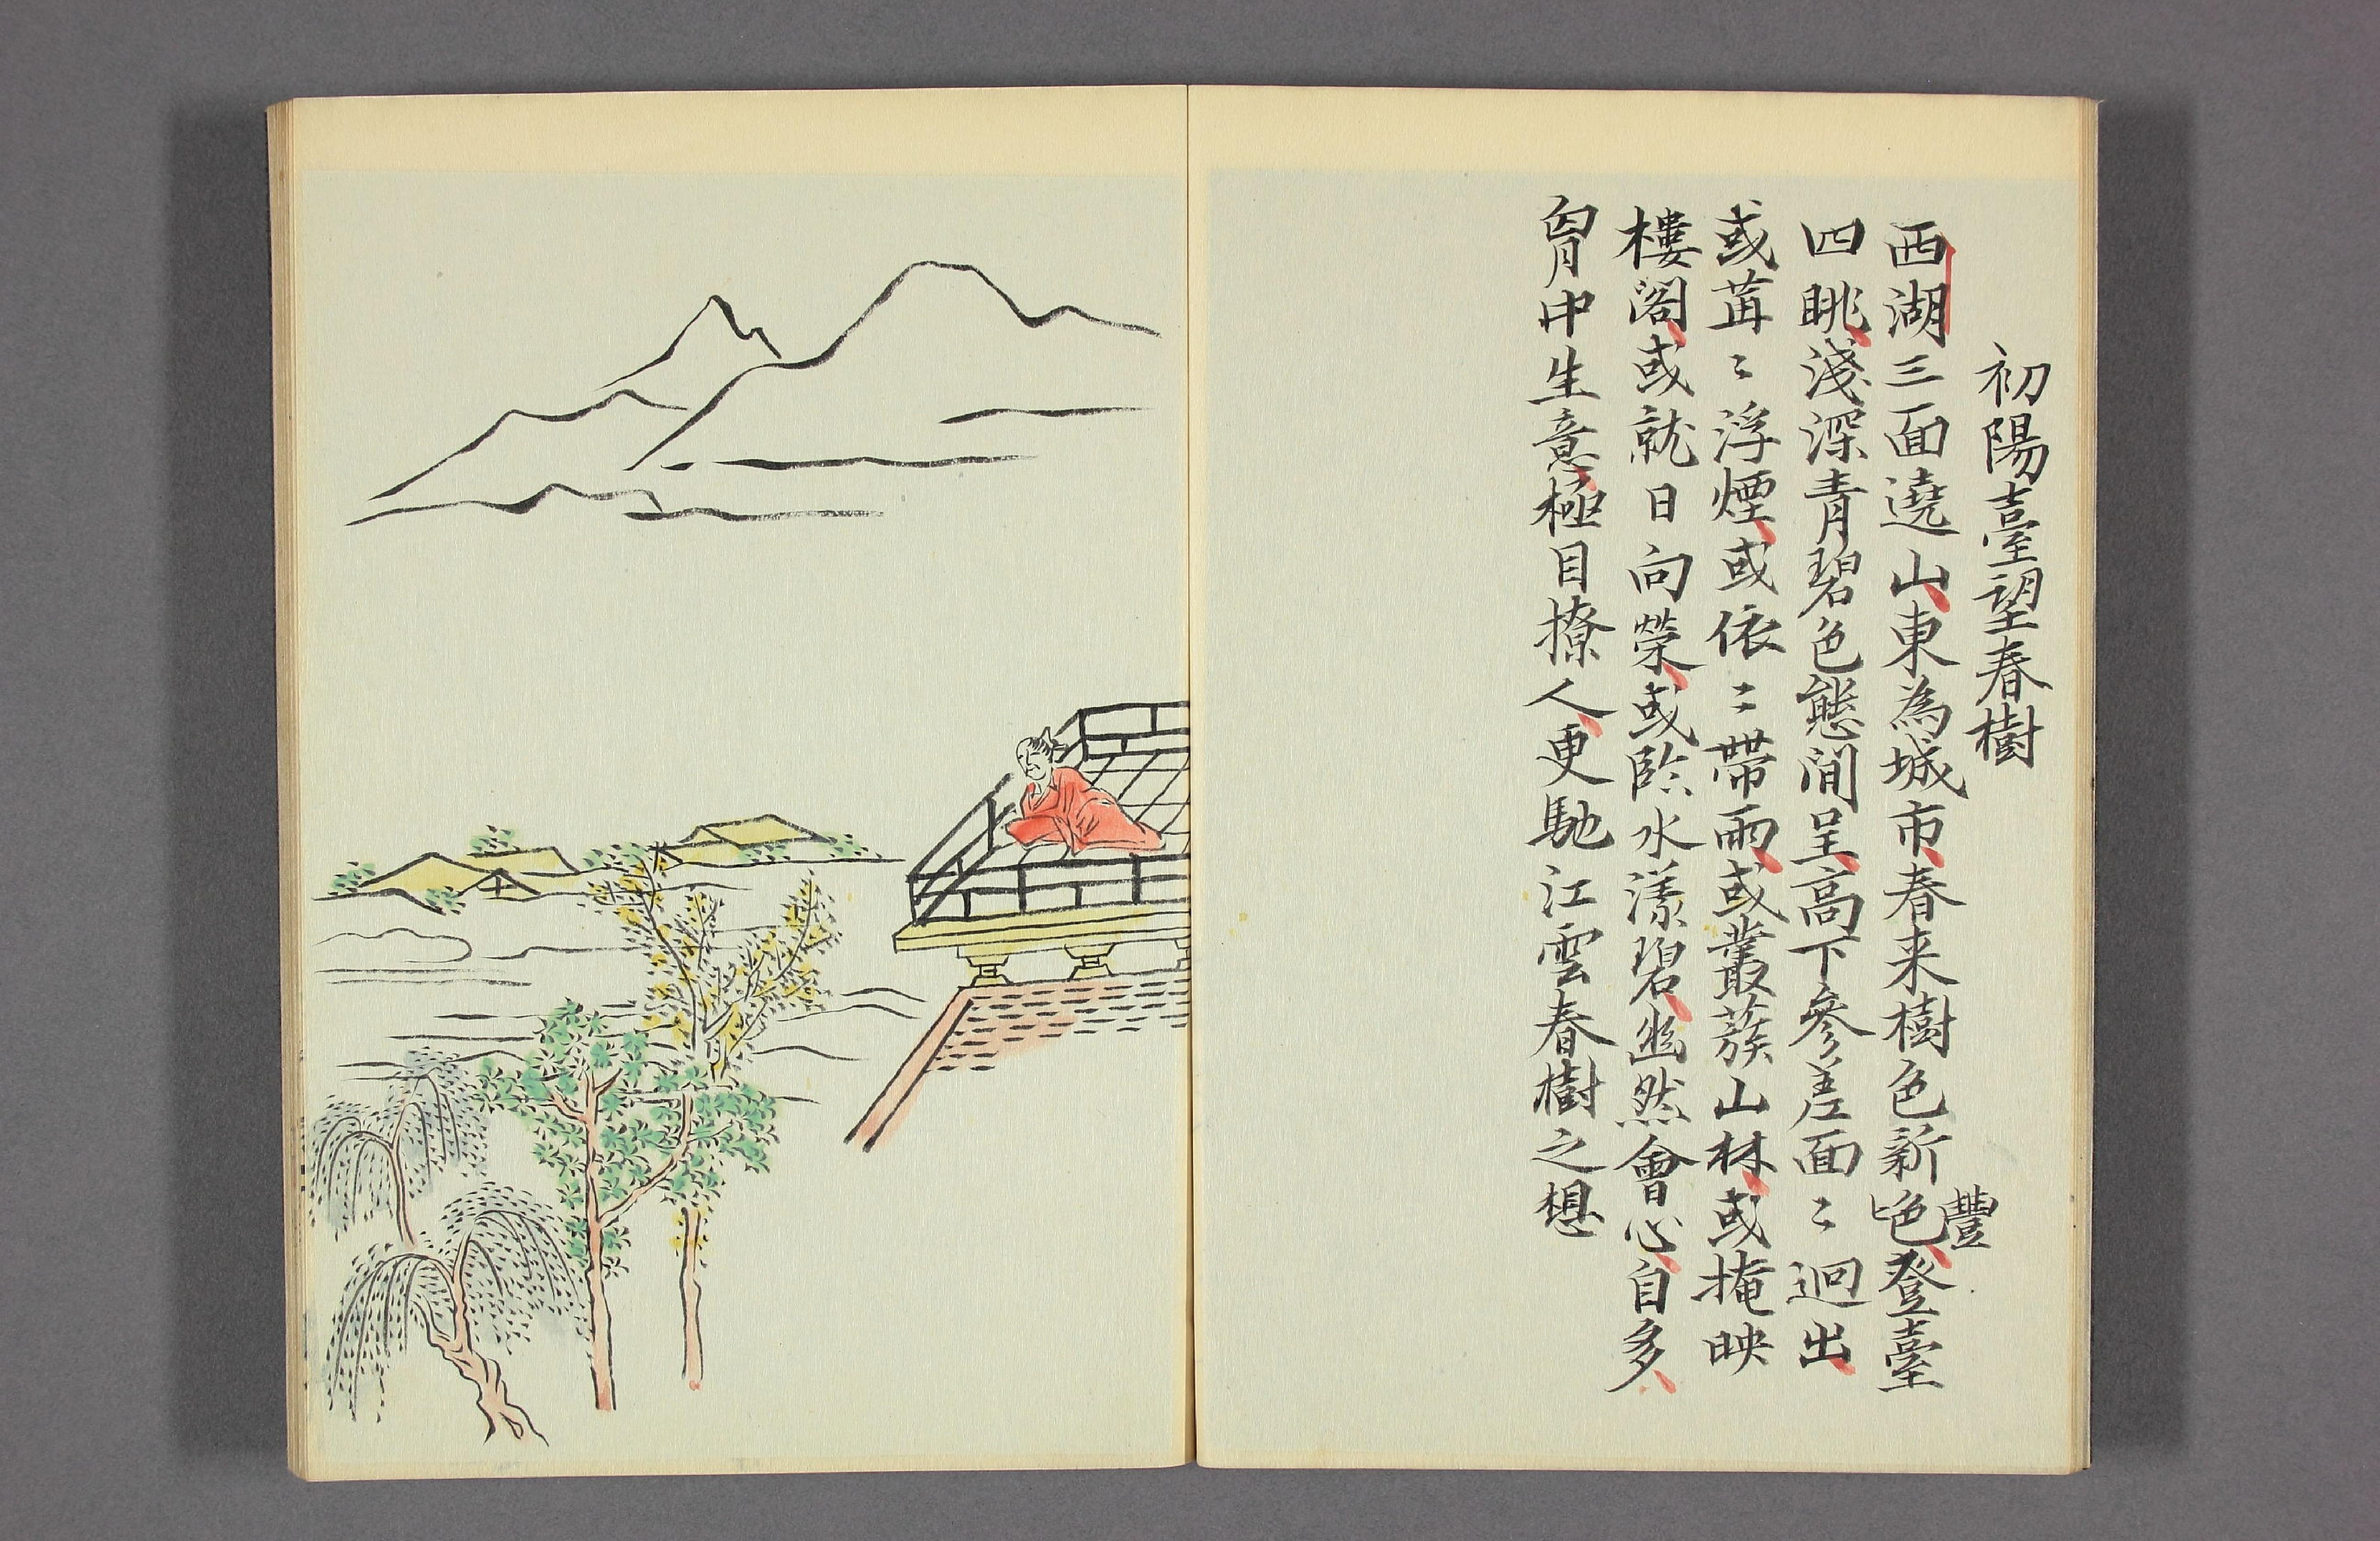 初陽臺望春樹
西湖三面遶山東為城市春来樹色新色登臺
豐
ヒ
四眺淺深青碧色態間呈高下參差面〻迥出
或苒〻浮煙或依〻帶雨或叢蔟山林或掩映
樓閣或就日向榮或臨水漾碧幽然會心自多
胷中生意極目撩人更馳江雲春樹之想